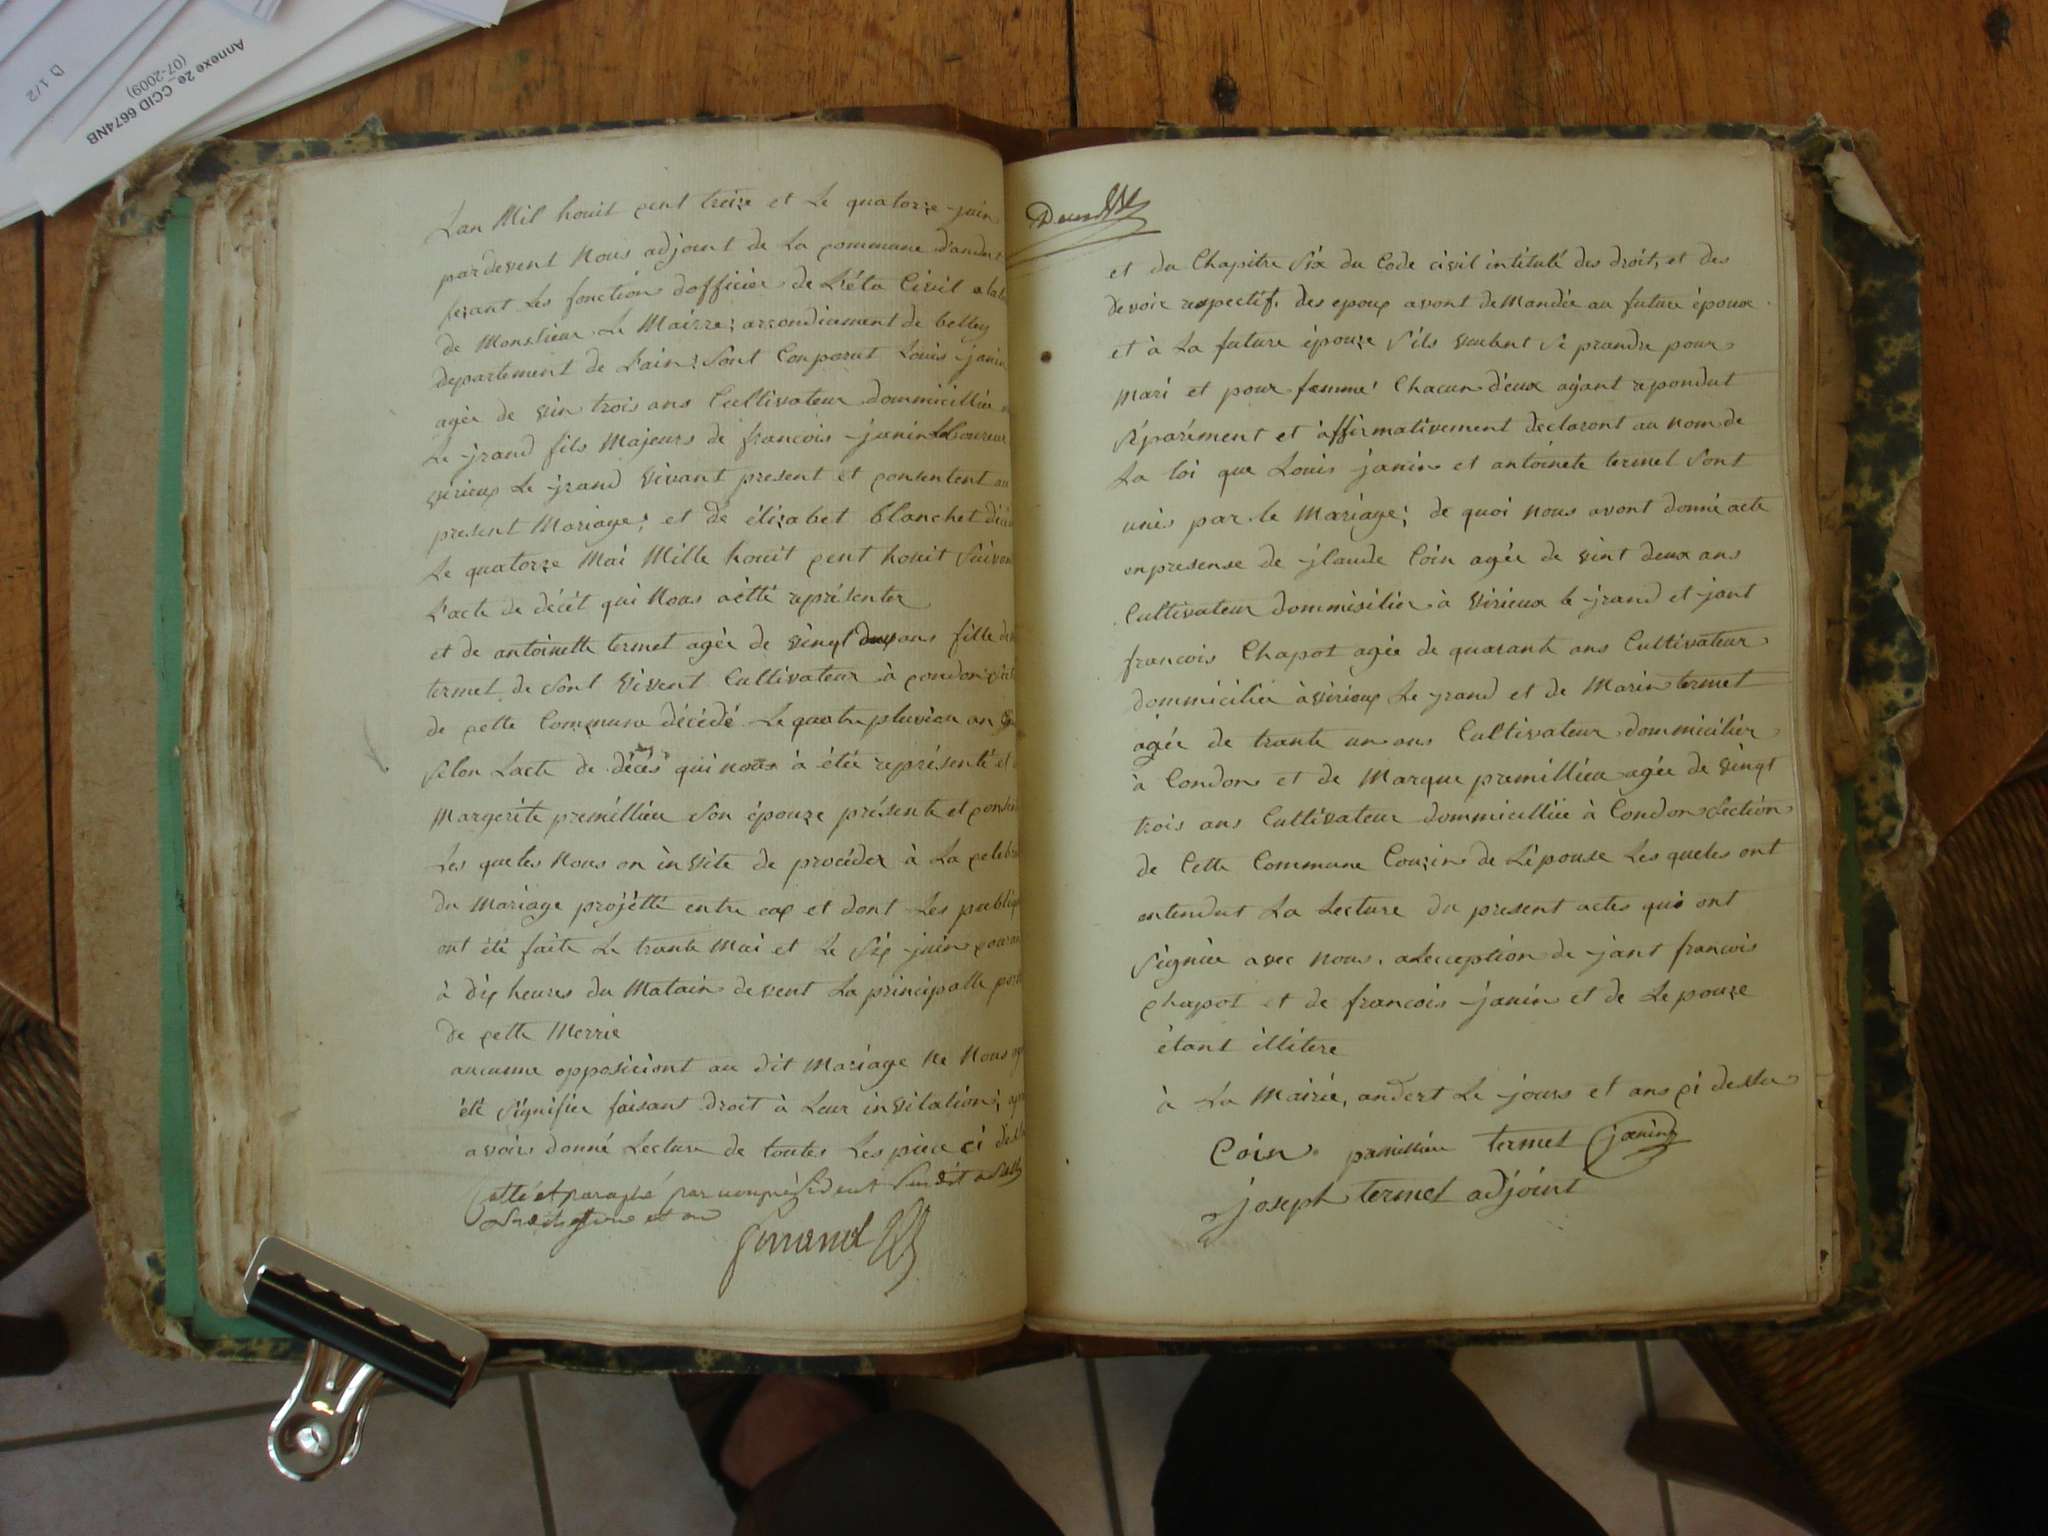 Annexe 2e_CCID 6674NB
(07-2009)
D 1/2
Lan Mil houit cent treize et Le quatorze juin
pardevent Nous adjoint de La commune d'andert
fezant Les fonction dofficier de L'éta Civil a la
de Monsieur Le Mairre; arrondiament de belley
departement de L'ain: Sont Conparut Louis janin
agée de vin trois ans Cultivateur dommicillié
Le jrand fils Majeurs de francois janin Laboureur
virieux Le jrand vivant present et consentent au
present Mariage; et de élizabet blanchet décé
Le quatorze Mai Mille houit cent houit Suivan
L'acte de décét qui Nous aétté représenter
et de antoinette termet agée de vingt deux ans fille de
termet de Sont vivent Cultivateur à condon
de cette Commune décédé Le quatre pluviou an
Selon Lacte de décés qui nous à étée représenté et
Margerite premillieu Son épouze présente et consen
Les queles Nous on invite de procéder à La celeb
du Mariage projétté entre eux et dont Les publiq
ont été faite Le trante Mai et Le Six juin
à dix heures du Matain devent La principalle port
de cette Merrie
aucunne opposiciont au dit Mariage Ne Nous
été Signifier faisant droit à Leur invitation;
avoir donné Lecture de toutes Les piece ci dessu
Cotté et paraphé par nous président
Gerrand
et du Chapitre Six du Code civil intitulé des droit, et des
devoir respectif. des epoux avont deMandée au future époux
et à La future épouze S'ils veulent Se prandre pour
Mari et pour femme: Chacun d'eux ayant repondut
Séparément et affirmativement declaront au nom de
La loi que Louis janin et antoinete termet Sont
unis par le Mariage; de quoi Nous avont donné acte
en presense de jlaude Coin agée de vint deux ans
Cultivateur dommisilier à virieux le jrand et jant
francois Chapot agée de quarante ans Cultivateur
dommicilier à virieux Le jrand et de Marin termet
agée de trante un ans Cultivateur dommicilier
à Condon et de Marque premillieu agée de vingt
trois ans Cultivateur dommicillié à Condon Section
de Cette Commune Couzin de L'épouse Les queles ont
entendut La Lecture du present actes qui ont
Signiée avec Nous. aLecception de jant francois
chapot et de francois janin et de Lepouze
étant illitere
à La Mairie, andert Le jours et ans ci dessu
Coin premillieu termet janin
joseph termet adjoint